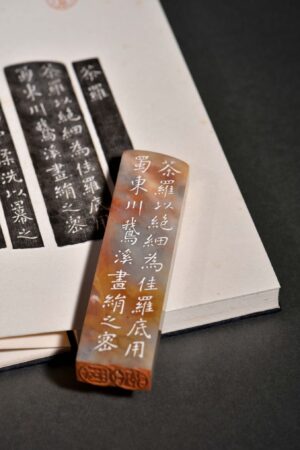 茶羅
茶羅以絕細為佳羅底
蜀東川鵞溪畫絹之密
揉洗以羃之
茶羅以絕細為佳羅底用
蜀東川鵞溪畫絹之密